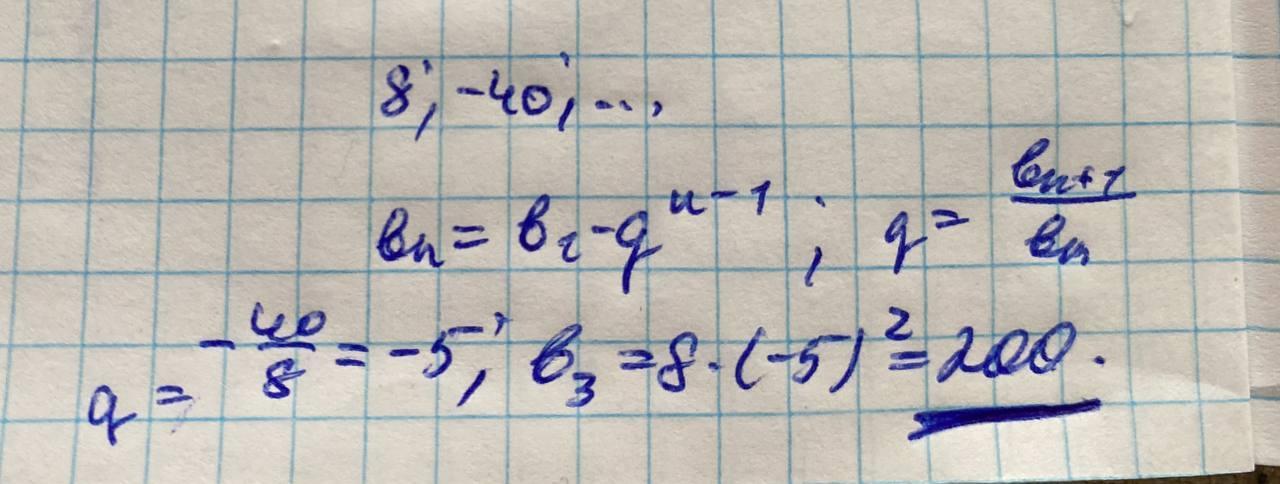 8; -40; ...
bₙ = b₁ · qⁿ⁻¹ ; q = bₙ₊₁/bₙ
q = -40/8 = -5; b₃ = 8 · (-5)² = 200.